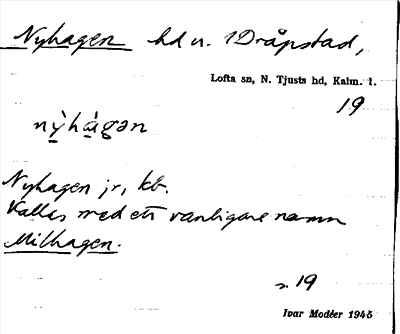 Nyhagen hd u. 1Dråpstad,
Lofta sn, N. Tjusts hd, Kalm. l.
19
nỳhágən
Nyhagen jr, kb.
Kallas med ett vanligare namn
Milhagen.
s. 19
Ivar Modéer 1945